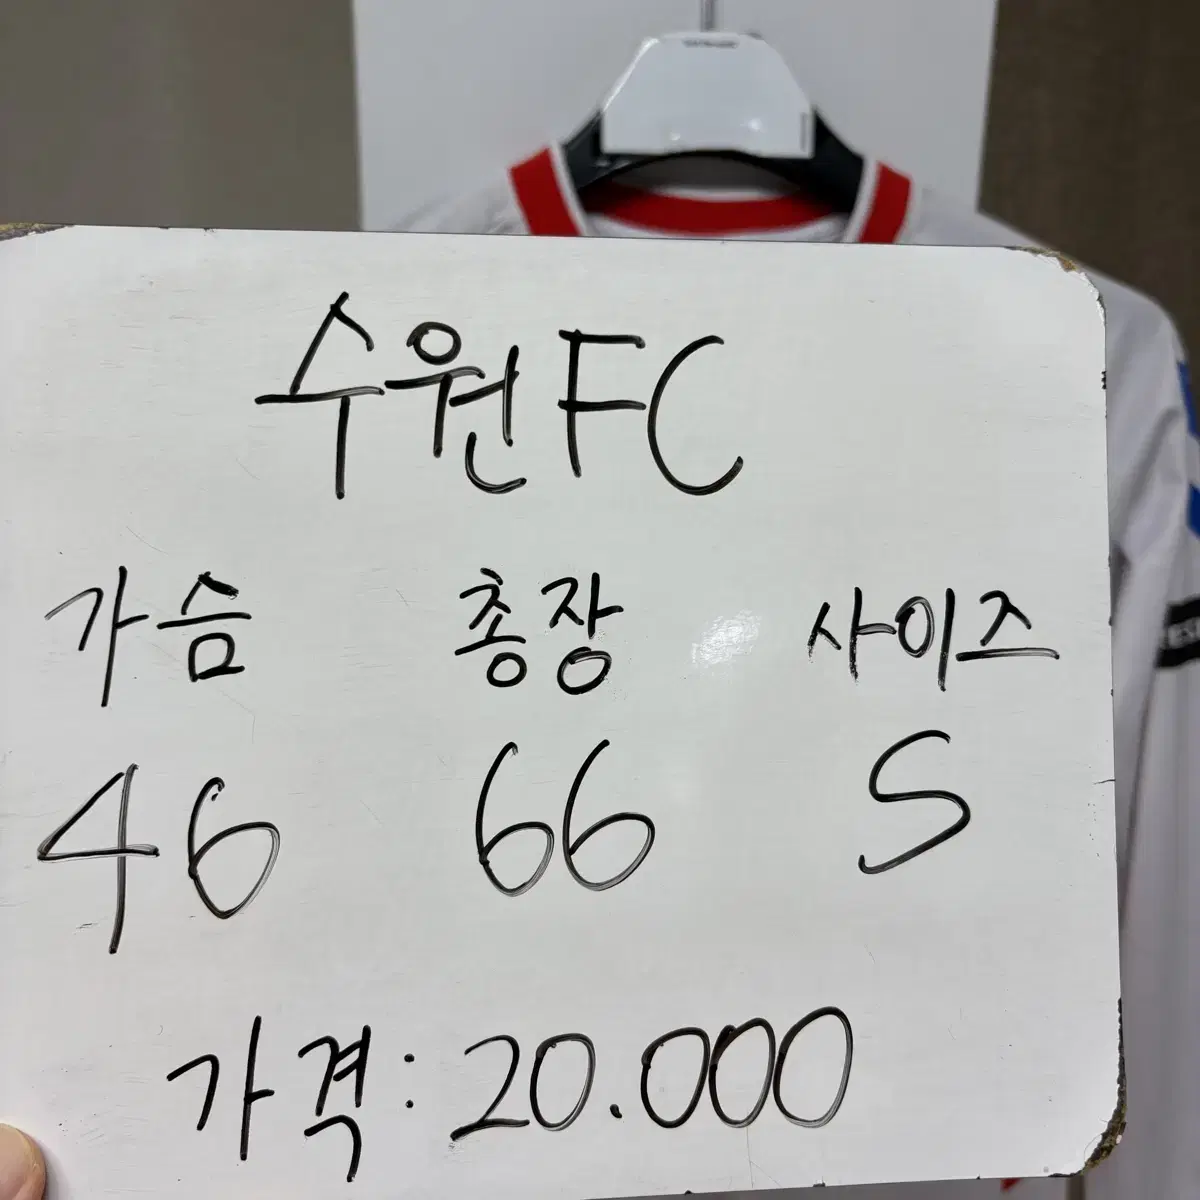 수원FC
가슴 총장 사이즈
46 66 S
가격: 20.000